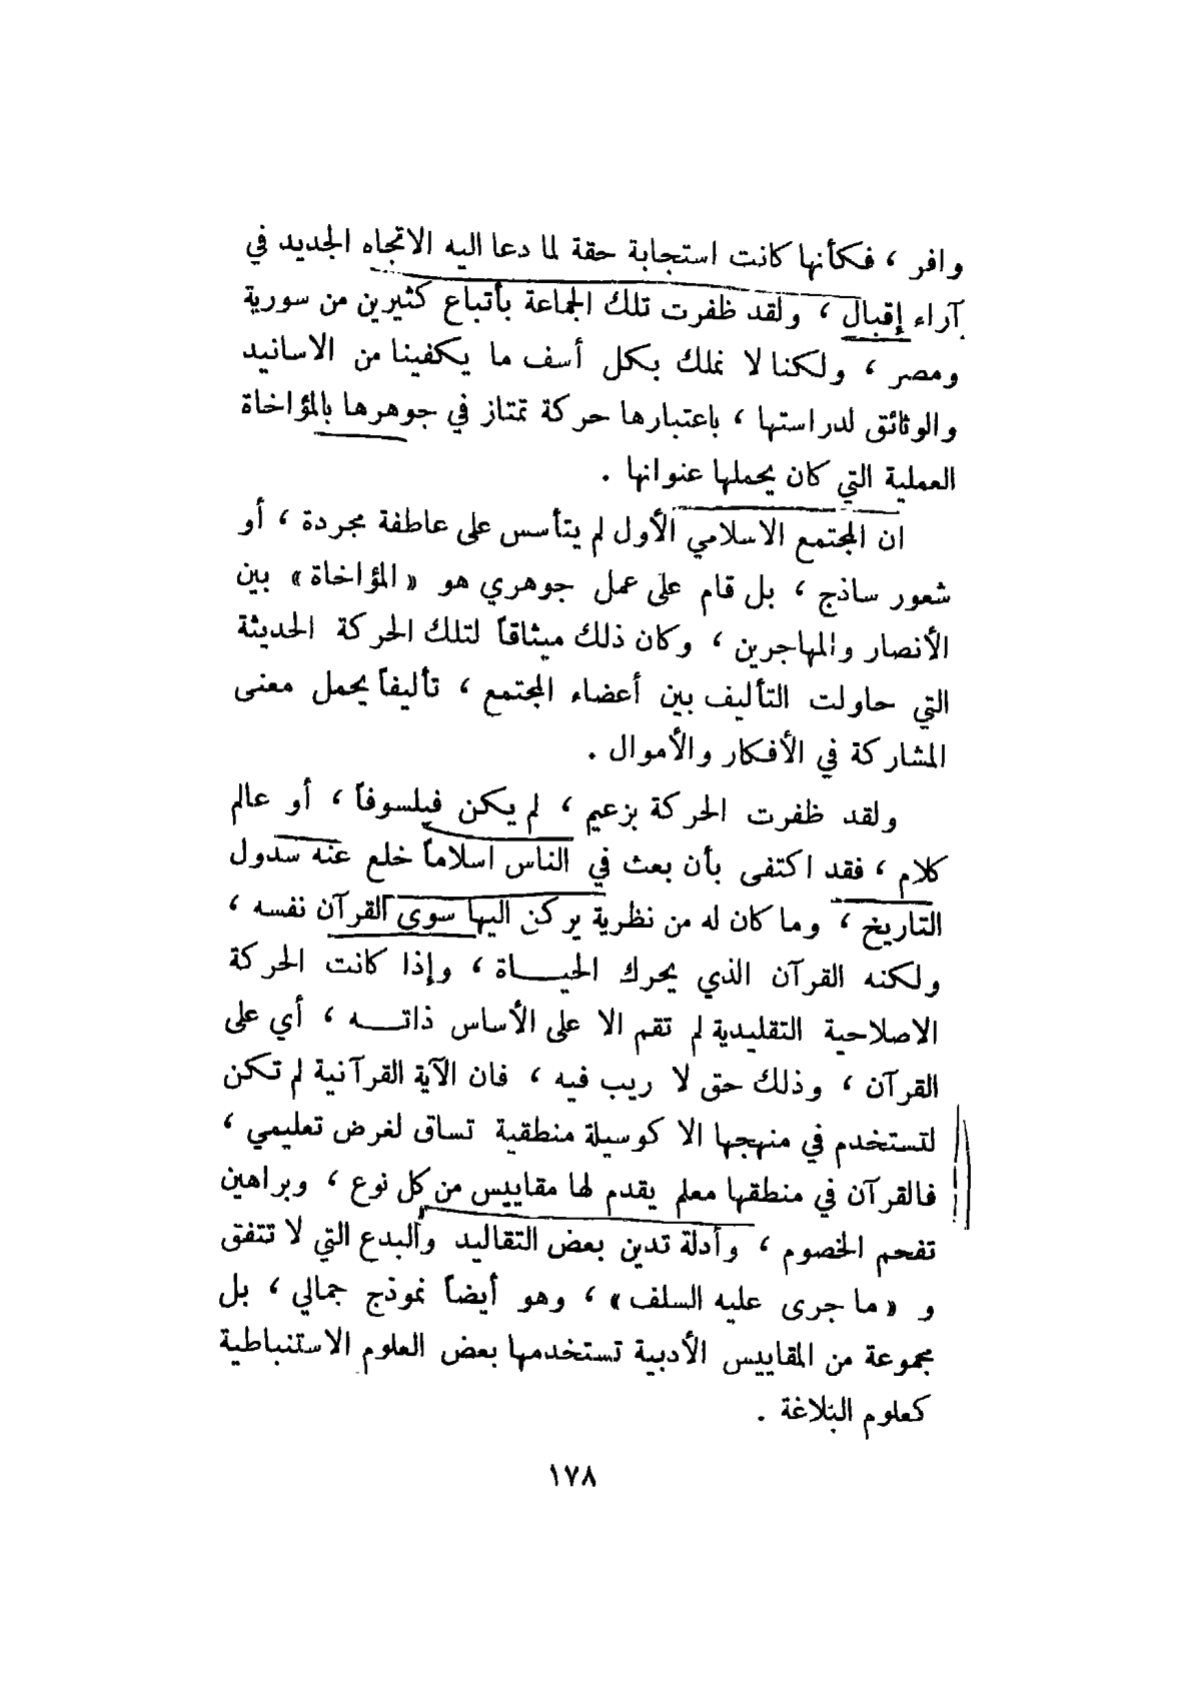 وافر ، فكأنها كانت استجابة حقة لما دعا اليه الاتجاه الجديد في
آراء إقبال ، ولقد ظفرت تلك الجماعة بأتباع كثيرين من سورية
ومصر ، ولكنا لا نملك بكل أسف ما يكفينا من الاسانيد
والوثائق لدراستها ، باعتبارها حركة تمتاز في جوهرها بالمؤاخاة
العملية التي كان يحملها عنوانها .
ان المجتمع الاسلامي الأول لم يتأسس على عاطفة مجردة ، أو
شعور ساذج ، بل قام على عمل جوهري هو « المؤاخاة » بين
الأنصار والمهاجرين ، وكان ذلك ميثاقاً لتلك الحركة الحديثة
التي حاولت التأليف بين أعضاء المجتمع ، تأليفاً يحمل معنى
المشاركة في الأفكار والأموال .
ولقد ظفرت الحركة بزعيم ، لم يكن فيلسوفاً ، أو عالم
كلام ، فقد اكتفى بأن بعث في الناس اسلاماً خلع عنه سدول
التاريخ ، وما كان له من نظرية يركن اليها سوى القرآن نفسه ،
ولكنه القرآن الذي يحرك الحيـــاة ، وإذا كانت الحركة
الاصلاحية التقليدية لم تقم الا على الأساس ذاتـــه ، أي على
القرآن ، وذلك حق لا ريب فيه ، فان الآية القرآنية لم تكن
لتستخدم في منهجها الا كوسيلة منطقية تساق لغرض تعليمي ،
فالقرآن في منطقها معلم يقدم لها مقاييس من كل نوع ، وبراهين
تفحم الخصوم ، وأدلة تدين بعض التقاليد والبدع التي لا تتفق
و « ما جرى عليه السلف » ، وهو أيضاً نموذج جمالي ، بل
مجموعة من المقاييس الأدبية تستخدمها بعض العلوم الاستنباطية
كعلوم البلاغة .
١٧٨